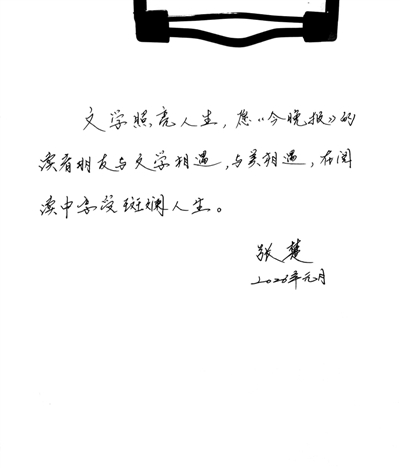 文学照亮人生,愿《今晚报》的
读者朋友与文学相遇,与美相遇,在阅
读中享受斑斓人生。
张楚
2026年元月